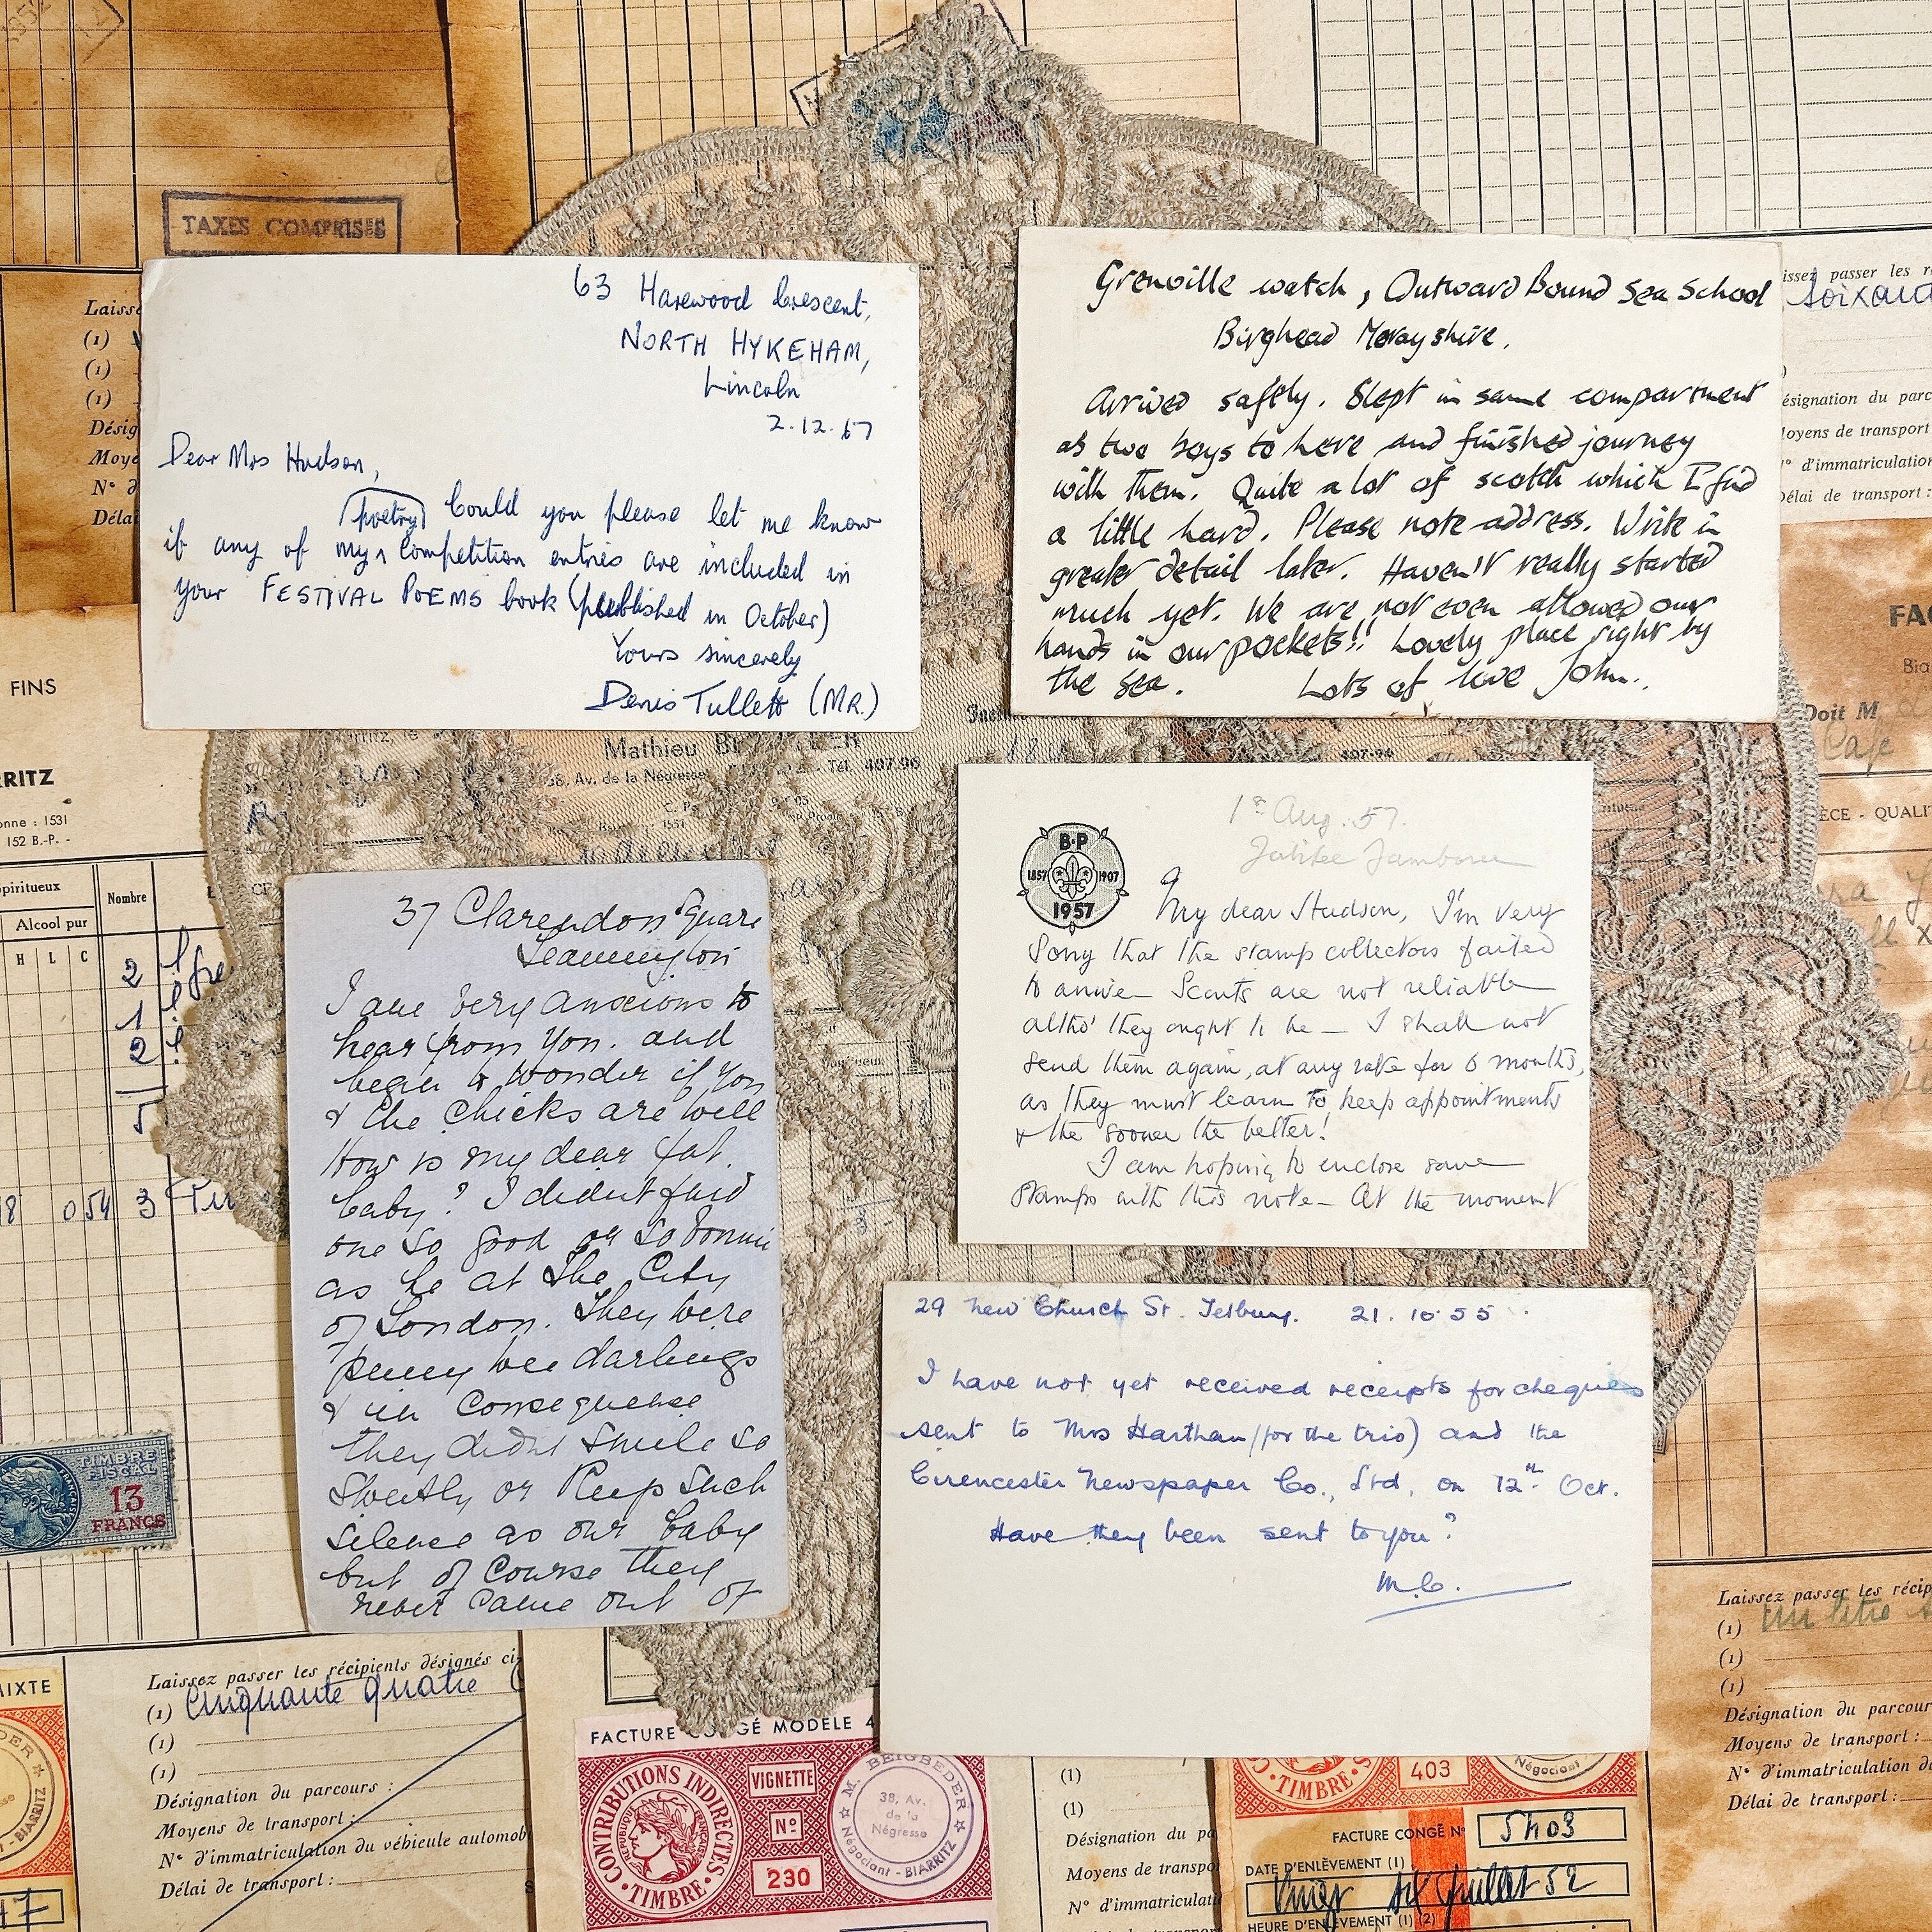 TAXES COMPRISES
63 Harewood Crescent,
NORTH HYKEHAM,
Lincoln
2.12.67
Dear Mrs Hudson,
poetry Could you please let me know
if any of my competition entries are included in
your FESTIVAL POEMS book (published in October)
Yours sincerely
Denis Tullett (MR.)
Grenville watch, Outward Bound Sea School
Burghead Morayshire.
Arrived safely. Slept in same compartment
as two boys to here and finished journey
with them. Quite a lot of scotch which I find
a little hard. Please note address. Write in
greater detail later. Haven't really started
much yet. We are not even allowed our
hands in our pockets!! Lovely place right by
the sea. Lots of love John.
B·P
1857 1907
1957
1st Aug. 57.
Jubilee Jamboree
My dear Hudson, I'm very
sorry that the stamp collectors failed
to arrive – Scouts are not reliable
altho' they ought to be – I shall not
send them again, at any rate for 6 months,
as they must learn to keep appointments
& the sooner the better!
I am hoping to enclose some
stamps with this note – At the moment
37 Clarendon Square
Leamington
I am very anxious to
hear from you. and
begin to wonder if you
& the chicks are well
How is my dear fat
baby? I didn't find
one so good or so bonnie
as he at The City
of London. They were
puny wee darlings
& in consequence
they didn't smile so
sweetly or keep such
silence as our baby
but of course they
never came out of
29 New Church St. Tetbury. 21.10.55
I have not yet received receipts for cheques
sent to Mrs Hartham (for the trio) and the
Cirencester Newspaper Co., Ltd, on 12th Oct.
Have they been sent to you?
M.C.
FINS
RRITZ
onne : 1531
152 B.-P. -
piritueux
Nombre
Alcool pur
H L C
2
1
2
5
18 0 54 3
TIMBRE
FISCAL
13
FRANCS
Mathieu
38, Av. de la Négresse
Tél. 407-96
Doit M
ÈCE - QUALI
Laissez passer les récipients désignés ci
(1) Cinquante quatre
(1)
(1)
Désignation du parcours :
Moyens de transport :
N° d'immatriculation du véhicule automob
Délai de transport :
FACTURE CONGÉ MODELE 4
CONTRIBUTIONS INDIRECTES
TIMBRE
VIGNETTE
N°
230
M. BEIGBEDER
38, Av.
de la
Négresse
Négociant - BIARRITZ
(1)
(1)
Désignation du pa
Moyens de transpo
N° d'immatricula
TIMBRE
403
Négociant
FACTURE CONGÉ N° 5403
DATE D'ENLÈVEMENT (1)
Vingt six juillet 52
HEURE D'ENLÈVEMENT (1) (2)
Laissez passer les récip
(1) un litre
(1)
(1)
Désignation du parcour
Moyens de transport :
N° d'immatriculation du
Délai de transport :